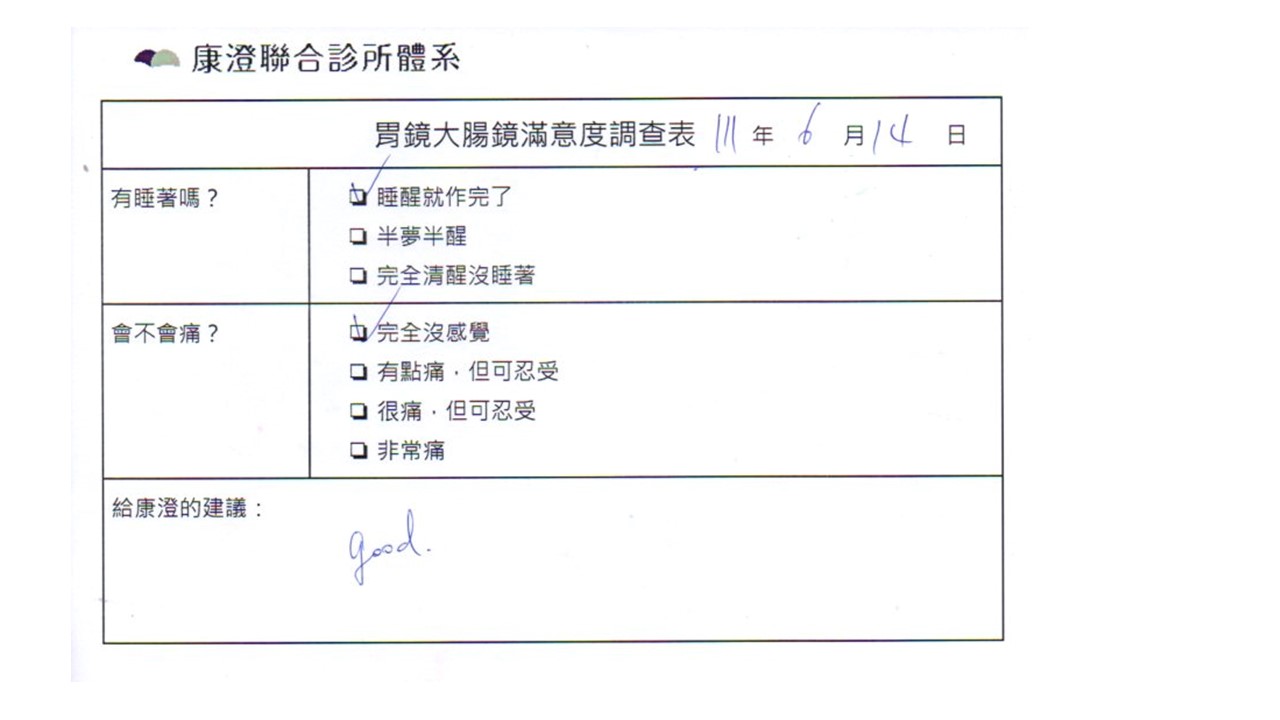 康澄聯合診所體系
胃鏡大腸鏡滿意度調查表 111 年 6 月 14 日
有睡著嗎？
睡醒就作完了
半夢半醒
完全清醒沒睡著
會不會痛？
完全沒感覺
有點痛，但可忍受
很痛，但可忍受
非常痛
給康澄的建議：
good.